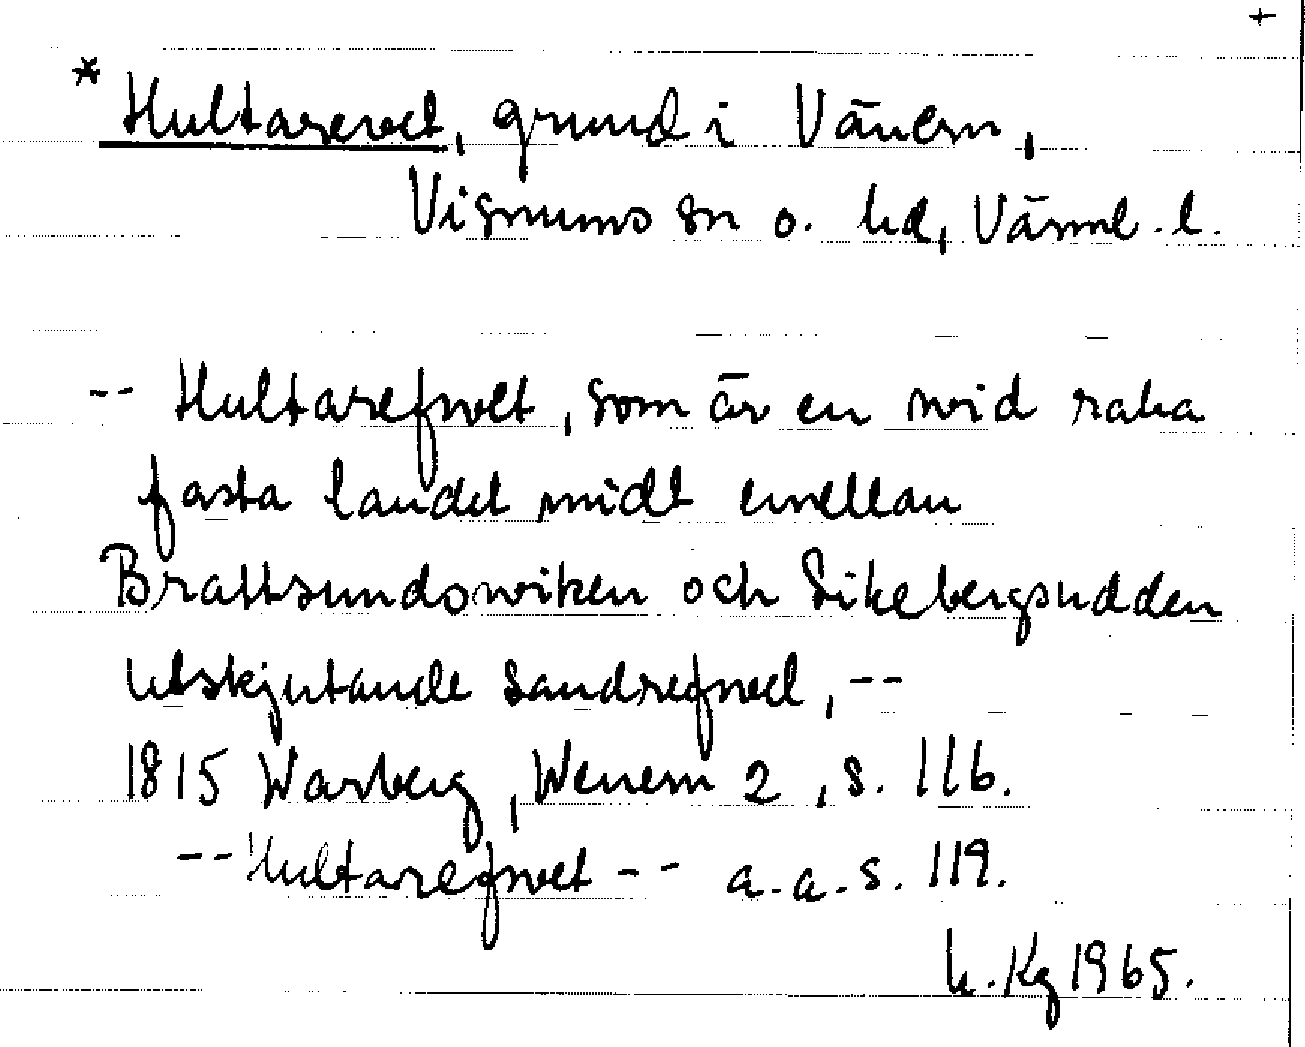 +
* Hultarevet, grund i Vänern,
Visnums sn o. hd, Värml. l.
-- Hultarefwet, som är en wid raka
fasta landet midt emellan
Brattsundswiken och Sikebergsudden
utskjutande Sandrefwel, --
1815 Warberg, Wenern 2, s. 116.
-- Hultarefwet -- a.a.s. 119.
Kg 1965.